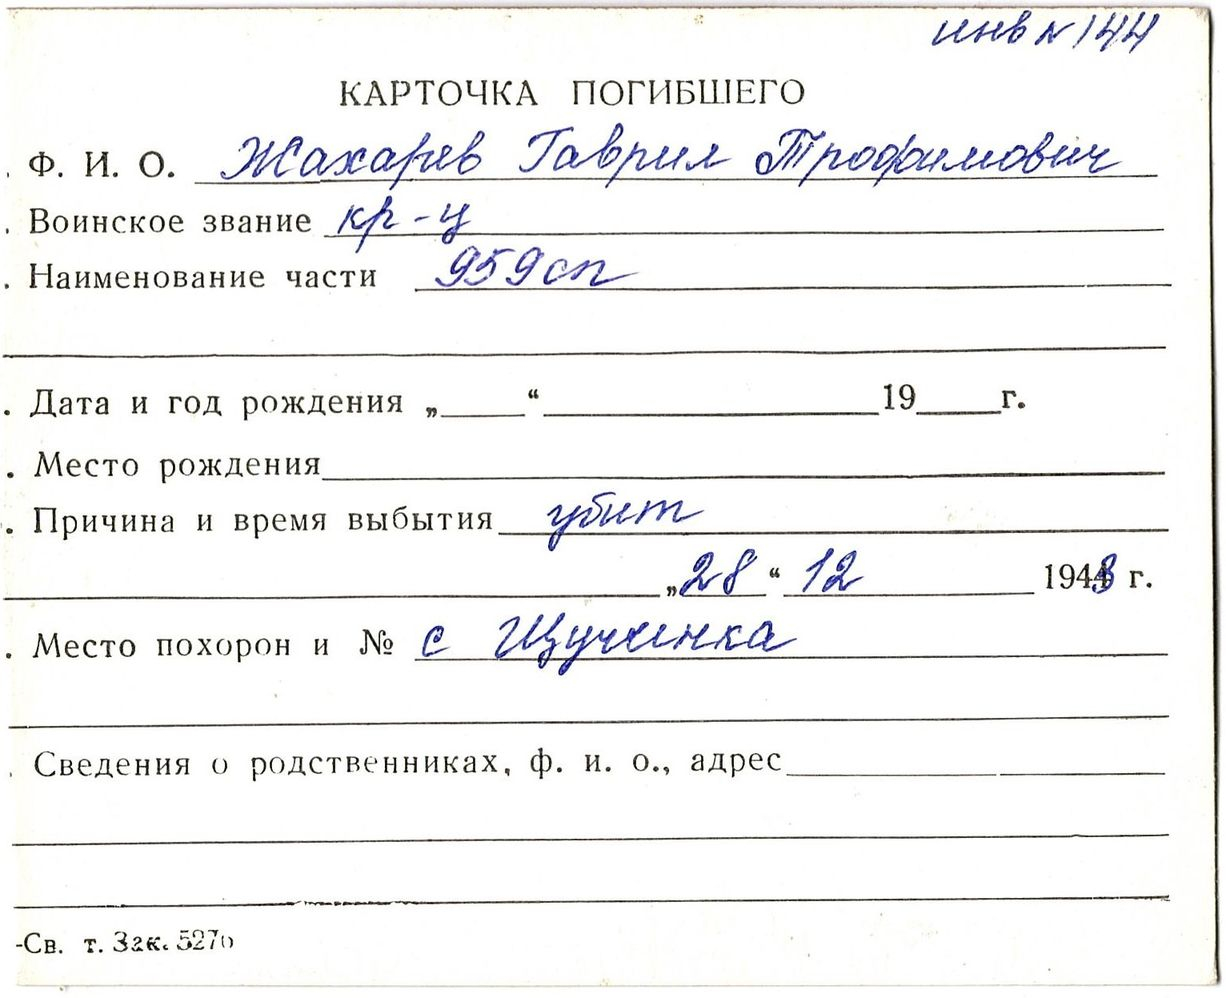 инв № 144
КАРТОЧКА ПОГИБШЕГО
. Ф. И. О. Жахарев Гаврил Трофимович
. Воинское звание кр-ц
. Наименование части 959 сп
. Дата и год рождения „____“____________19____г.
. Место рождения
. Причина и время выбытия убит
„28“ 12 1943 г.
. Место похорон и № с Щучинка
. Сведения о родственниках, ф. и. о., адрес
-Св. т. Зак. 5270